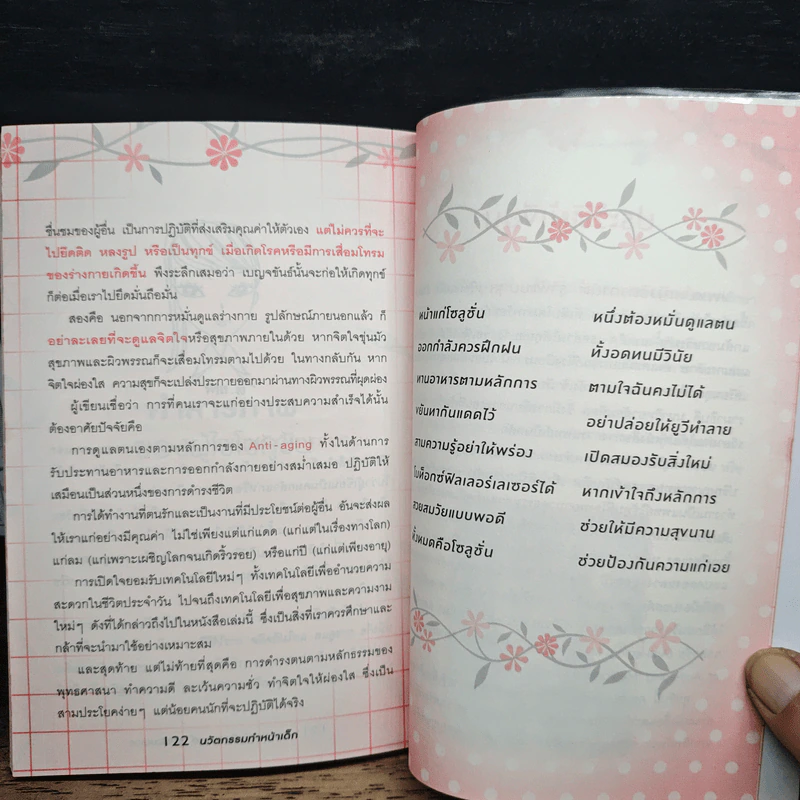 ชื่นชมของผู้อื่น เป็นการปฏิบัติที่ส่งเสริมคุณค่าให้ตัวเอง แต่ไม่ควรที่จะ
ไปยึดติด หลงรูป หรือเป็นทุกข์ เมื่อเกิดโรคหรือมีการเสื่อมโทรม
ของร่างกายเกิดขึ้น พึงระลึกเสมอว่า เบญจขันธ์นั้นจะก่อให้เกิดทุกข์
ก็ต่อเมื่อเราไปยึดมั่นถือมั่น
สองคือ นอกจากการหมั่นดูแลร่างกาย รูปลักษณ์ภายนอกแล้ว ก็
อย่าละเลยที่จะดูแลจิตใจหรือสุขภาพภายในด้วย หากจิตใจขุ่นมัว
สุขภาพและผิวพรรณก็จะเสื่อมโทรมตามไปด้วย ในทางกลับกัน หาก
จิตใจผ่องใส ความสุขก็จะเปล่งประกายออกมาผ่านทางผิวพรรณที่ผุดผ่อง
ผู้เขียนเชื่อว่า การที่คนเราจะแก่อย่างประสบความสำเร็จได้นั้น
ต้องอาศัยปัจจัยคือ
การดูแลตนเองตามหลักการของ Anti-aging ทั้งในด้านการ
รับประทานอาหารและการออกกำลังกายอย่างสม่ำเสมอ ปฏิบัติให้
เสมือนเป็นส่วนหนึ่งของการดำรงชีวิต
การได้ทำงานที่ตนรักและเป็นงานที่มีประโยชน์ต่อผู้อื่น อันจะส่งผล
ให้เราแก่อย่างมีคุณค่า ไม่ใช่เพียงแต่แก่แดด (แก่แต่ในเรื่องทางโลก)
แก่ลม (แก่เพราะเผชิญโลกจนเกิดริ้วรอย) หรือแก่ปี (แก่แต่เพียงอายุ)
การเปิดใจยอมรับเทคโนโลยีใหม่ๆ ทั้งเทคโนโลยีเพื่ออำนวยความ
สะดวกในชีวิตประจำวัน ไปจนถึงเทคโนโลยีเพื่อสุขภาพและความงาม
ใหม่ๆ ดังที่ได้กล่าวถึงไปในหนังสือเล่มนี้ ซึ่งเป็นสิ่งที่เราควรศึกษาและ
กล้าที่จะนำมาใช้อย่างเหมาะสม
และสุดท้าย แต่ไม่ท้ายที่สุดคือ การดำรงตนตามหลักธรรมของ
พุทธศาสนา ทำความดี ละเว้นความชั่ว ทำจิตใจให้ผ่องใส ซึ่งเป็น
สามประโยคง่ายๆ แต่น้อยคนนักที่จะปฏิบัติได้จริง
122 นวัตกรรมทำหน้าเด็ก
หน้าแก่โซลูชั่น หนึ่งต้องหมั่นดูแลตน
ออกกำลังควรฝึกฝน ทั้งอดทนมีวินัย
ทานอาหารตามหลักการ ตามใจฉันคงไม่ได้
ขยันทากันแดดไว้ อย่าปล่อยให้ยูวีทำลาย
สามความรู้อย่าให้พร่อง เปิดสมองรับสิ่งใหม่
โบท็อกซ์ฟิลเลอร์เลเซอร์ได้ หากเข้าใจถึงหลักการ
สวยสมวัยแบบพอดี ช่วยให้มีความสุขนาน
ทั้งหมดคือโซลูชั่น ช่วยป้องกันความแก่เอย